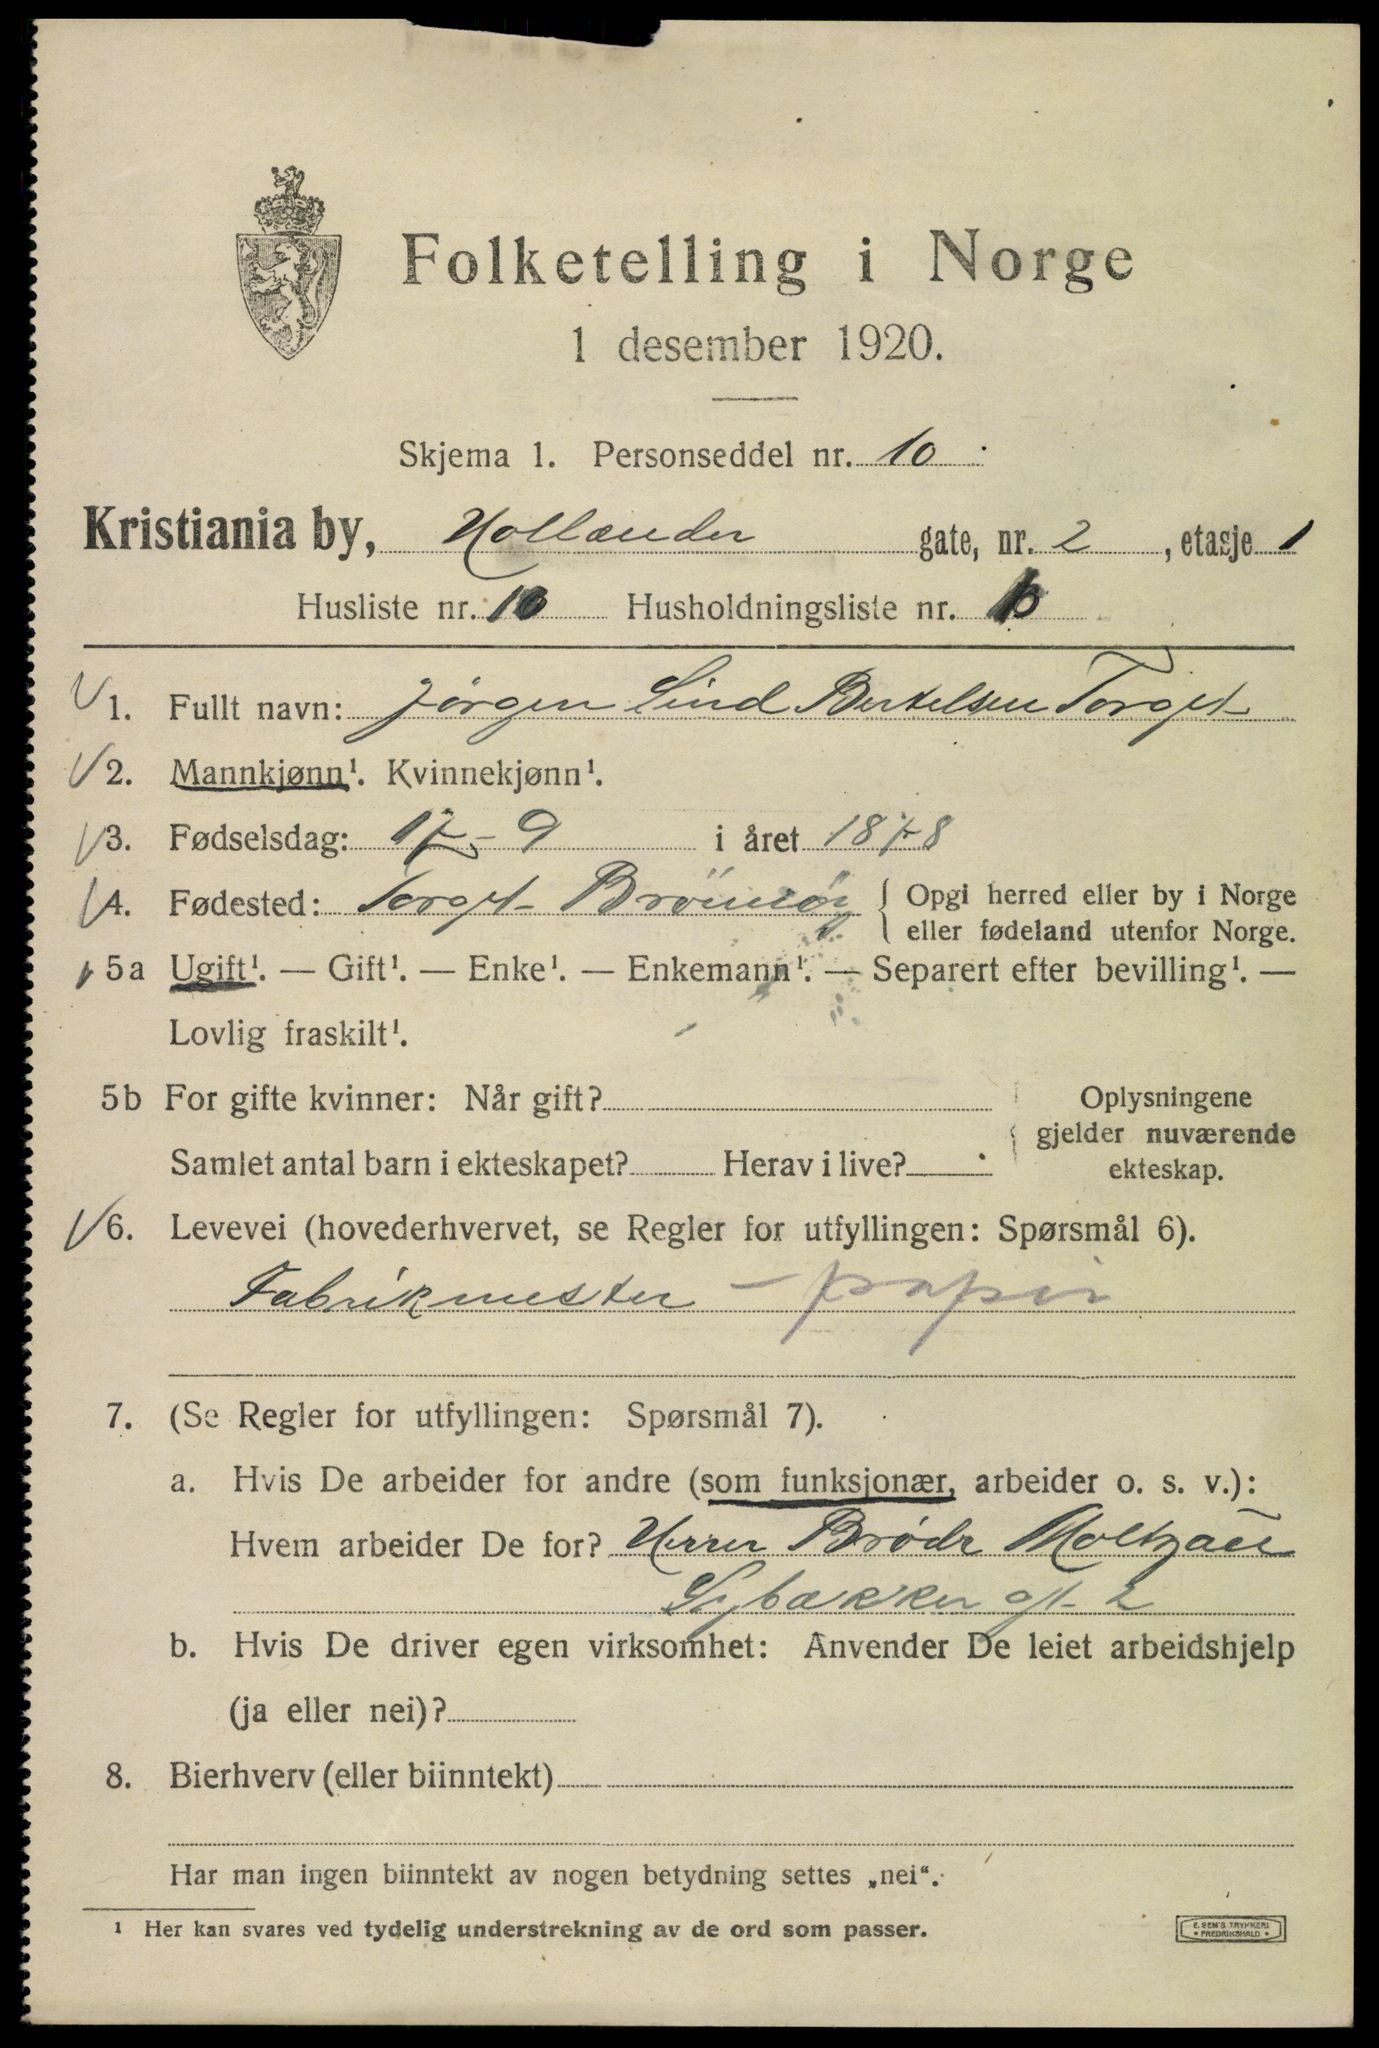 Folketelling i Norge
1 desember 1920.
Skjema 1. Personseddel nr. 10
Kristiania by, Hollænder gate, nr. 2, etasje 1
Husliste nr. 10 Husholdningsliste nr.
1. Fullt navn: Jørgen Lind Bertelsen Torget
2. Mannkjønn¹. Kvinnekjønn¹.
3. Fødselsdag: 17 - 9 i året 1878
4. Fødested: Torget Brönnöy { Opgi herred eller by i Norge
eller fødeland utenfor Norge.
5a Ugift¹. — Gift¹. — Enke¹. — Enkemann¹. — Separert efter bevilling¹. —
Lovlig fraskilt¹.
5b For gifte kvinner: Når gift? Oplysningene
gjelder nuværende
Samlet antal barn i ekteskapet? Herav i live? ekteskap.
6. Levevei (hovederhvervet, se Regler for utfyllingen: Spørsmål 6).
Fabrikmester - papir
7. (Se Regler for utfyllingen: Spørsmål 7).
a. Hvis De arbeider for andre (som funksjonær, arbeider o. s. v.):
Hvem arbeider De for? Herrer Brødr Moltzau
gt. 2
b. Hvis De driver egen virksomhet: Anvender De leiet arbeidshjelp
(ja eller nei)?
8. Bierhverv (eller biinntekt)
Har man ingen biinntekt av nogen betydning settes „nei".
¹ Her kan svares ved tydelig understrekning av de ord som passer.
E. SEM'S TRYKKERI
• FREDRIKSHALD •